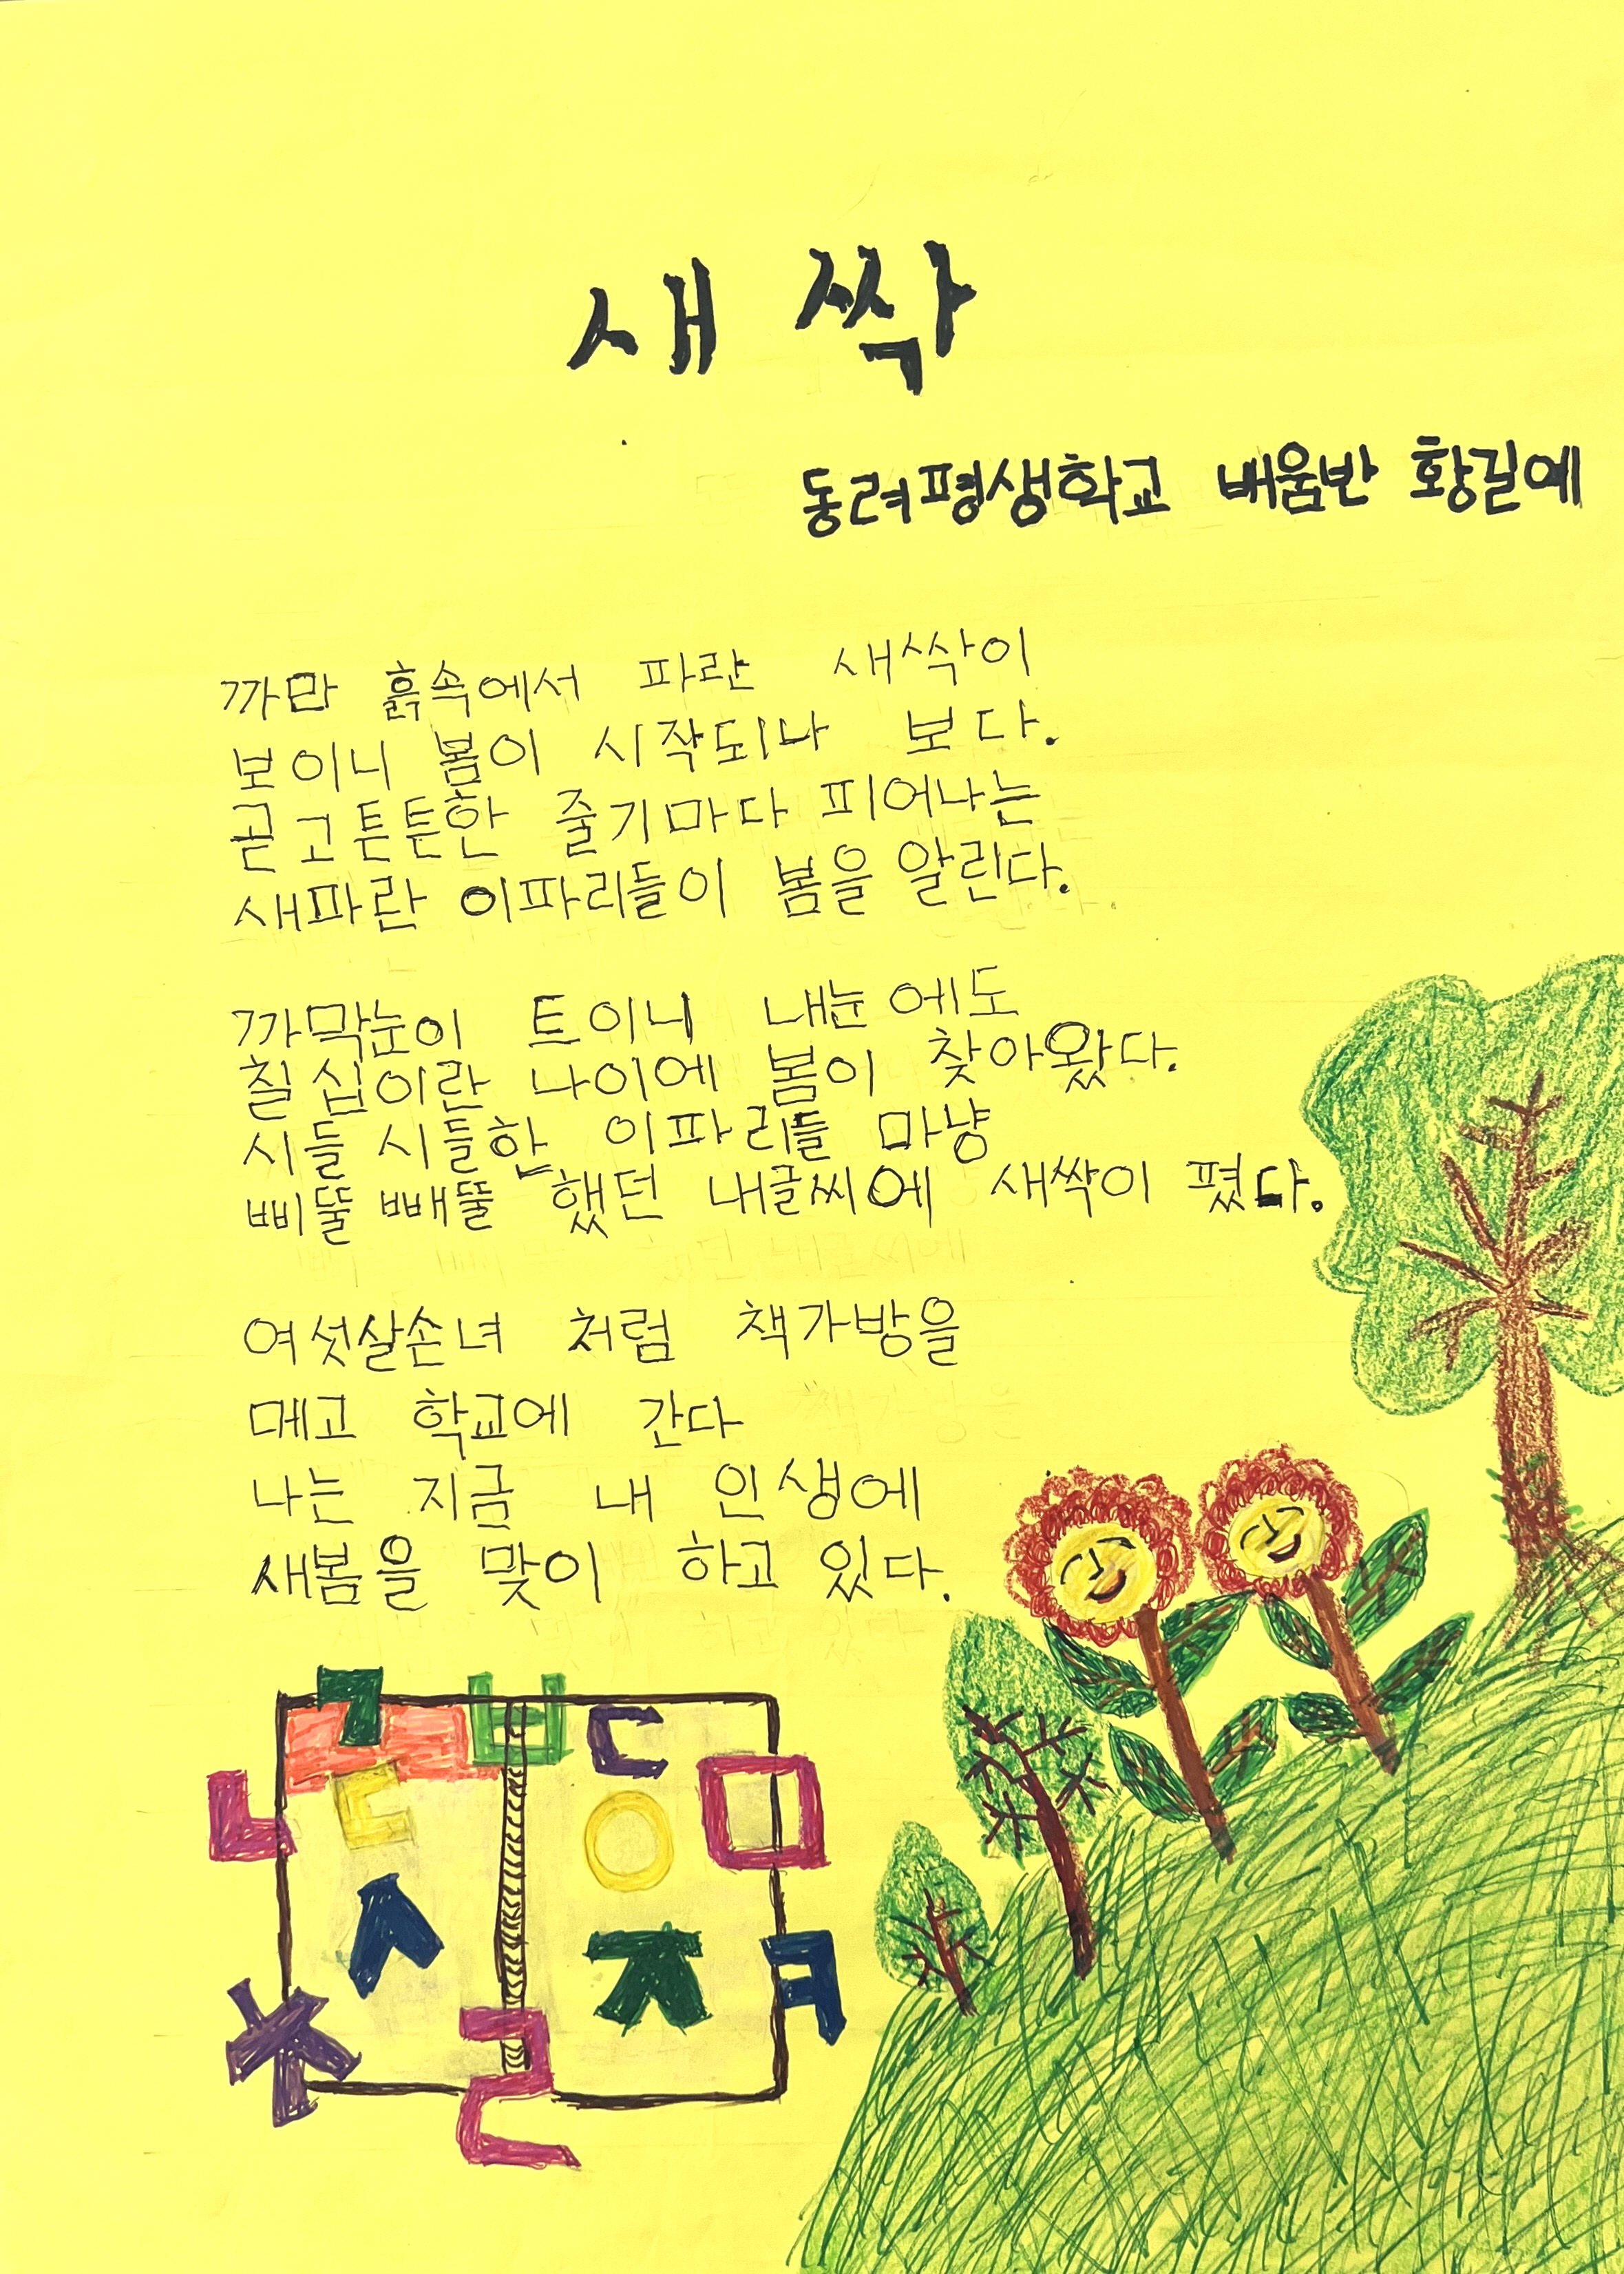 새 싹
동려평생학교 배움반 황길예
까만 흙속에서 파란 새싹이
보이니 봄이 시작되나 보다.
곧고튼튼한 줄기마다 피어나는
새파란 이파리들이 봄을 알린다.
까막눈이 트이니 내눈에도
칠십이란 나이에 봄이 찾아왔다.
시들시들한 이파리들 마냥
삐뚤빼뚤 했던 내글씨에 새싹이 폈다.
여섯살손녀 처럼 책가방을
메고 학교에 간다
나는 지금 내 인생에
새봄을 맞이 하고 있다.
ㄱ ㅂ ㄷ
ㄴ ㅌ ㅇ ㅁ
ㅅ ㅈ ㅋ
ㅊ ㄹ